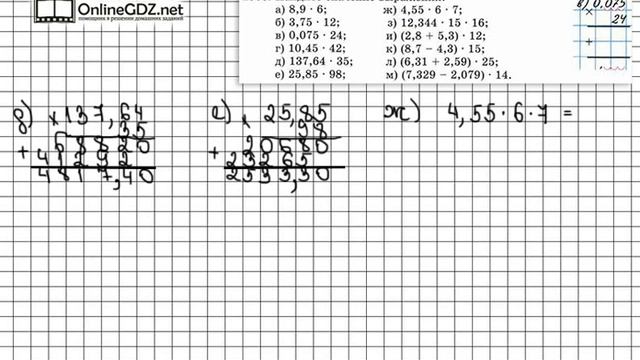 OnlineGDZ.net
помощник в решении домашних заданий
а) 8,9 · 6;
б) 3,75 · 12;
в) 0,075 · 24;
г) 10,45 · 42;
д) 137,64 · 35;
е) 25,85 · 98;
ж) 4,55 · 6 · 7;
з) 12,344 · 15 · 16;
и) (2,8 + 5,3) · 12;
к) (8,7 − 4,3) · 15;
л) (6,31 + 2,59) · 25;
м) (7,329 − 2,079) · 14.
в) 0,075
×
24
+
д) × 137,64
35
+ 68820
4817,40
е) × 25,85
98
+ 20680
2533,30
ж) 4,55 · 6 · 7 =